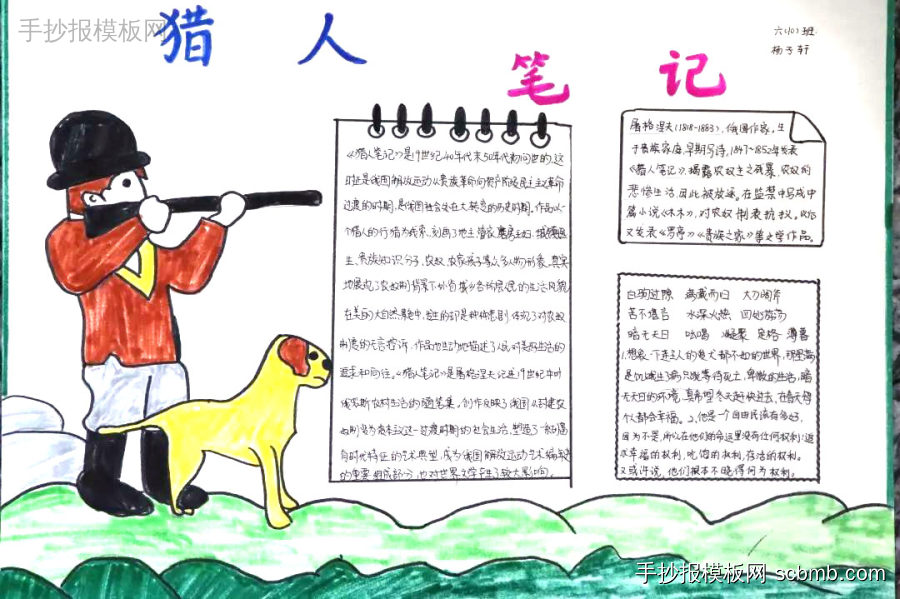 手抄报模板网
猎人
笔记
六(10)班
杨子轩
《猎人笔记》是19世纪40年代末50年代初问世的,这
时正是俄国解放运动从贵族革命向资产阶级民主主义革命
过渡的时期,是俄国社会处在大转变的历史时期。作品以一
个猎人的行猎为线索,刻画了地主、管家、磨房主妇、城镇医
生、贵族知识分子、农奴、农家孩子等众多人物形象,真实
地展现了农奴制背景下外省城乡各阶层人民的生活风貌
在美丽的大自然景色中,发生的却是种种悲剧,体现了对农奴
制度的无言控诉。作品也生动地描述了人民对美好生活的
追求和向往。《猎人笔记》是屠格涅夫记述19世纪中叶
俄罗斯农村生活的随笔集。创作反映了俄国从封建农
奴制
这一过渡时期的社会生活,塑造了一系列富
有时代特征的艺术典型,成为俄国解放运动艺术编年史
的重要组成部分,也对世界文学产生了较大影响。
屠格涅夫(1818-1883),俄国作家。生
于贵族家庭,早期写诗,1847~1852年发表
《猎人笔记》,揭露农奴主之残暴,农奴的
悲惨生活,因此被放逐。在监禁中写成中
篇小说《木木》,对农奴制表抗议。以后
又发表《罗亭》《贵族之家》等文学作品。
白驹过隙 满载而归 大刀阔斧
苦不堪言 水深火热 回肠荡气
暗无天日 吆喝 凝聚 炅烙 薄暮
1.想象一下,连主人的意义都不知的世界,
是饥饿生了病只能等待死亡,卑微的生活,暗
无天日的环境,真希望冬天赶快过去,在春天每
个人都会幸福。2.他是一个自由民该有多好,
因为不是,所以在他们的命运里没有任何权利:追
求幸福的权利,吃饱的权利,存活的权利。
又或许说,他们根本不晓得何为权利。
手抄报模板网 scbmb.com